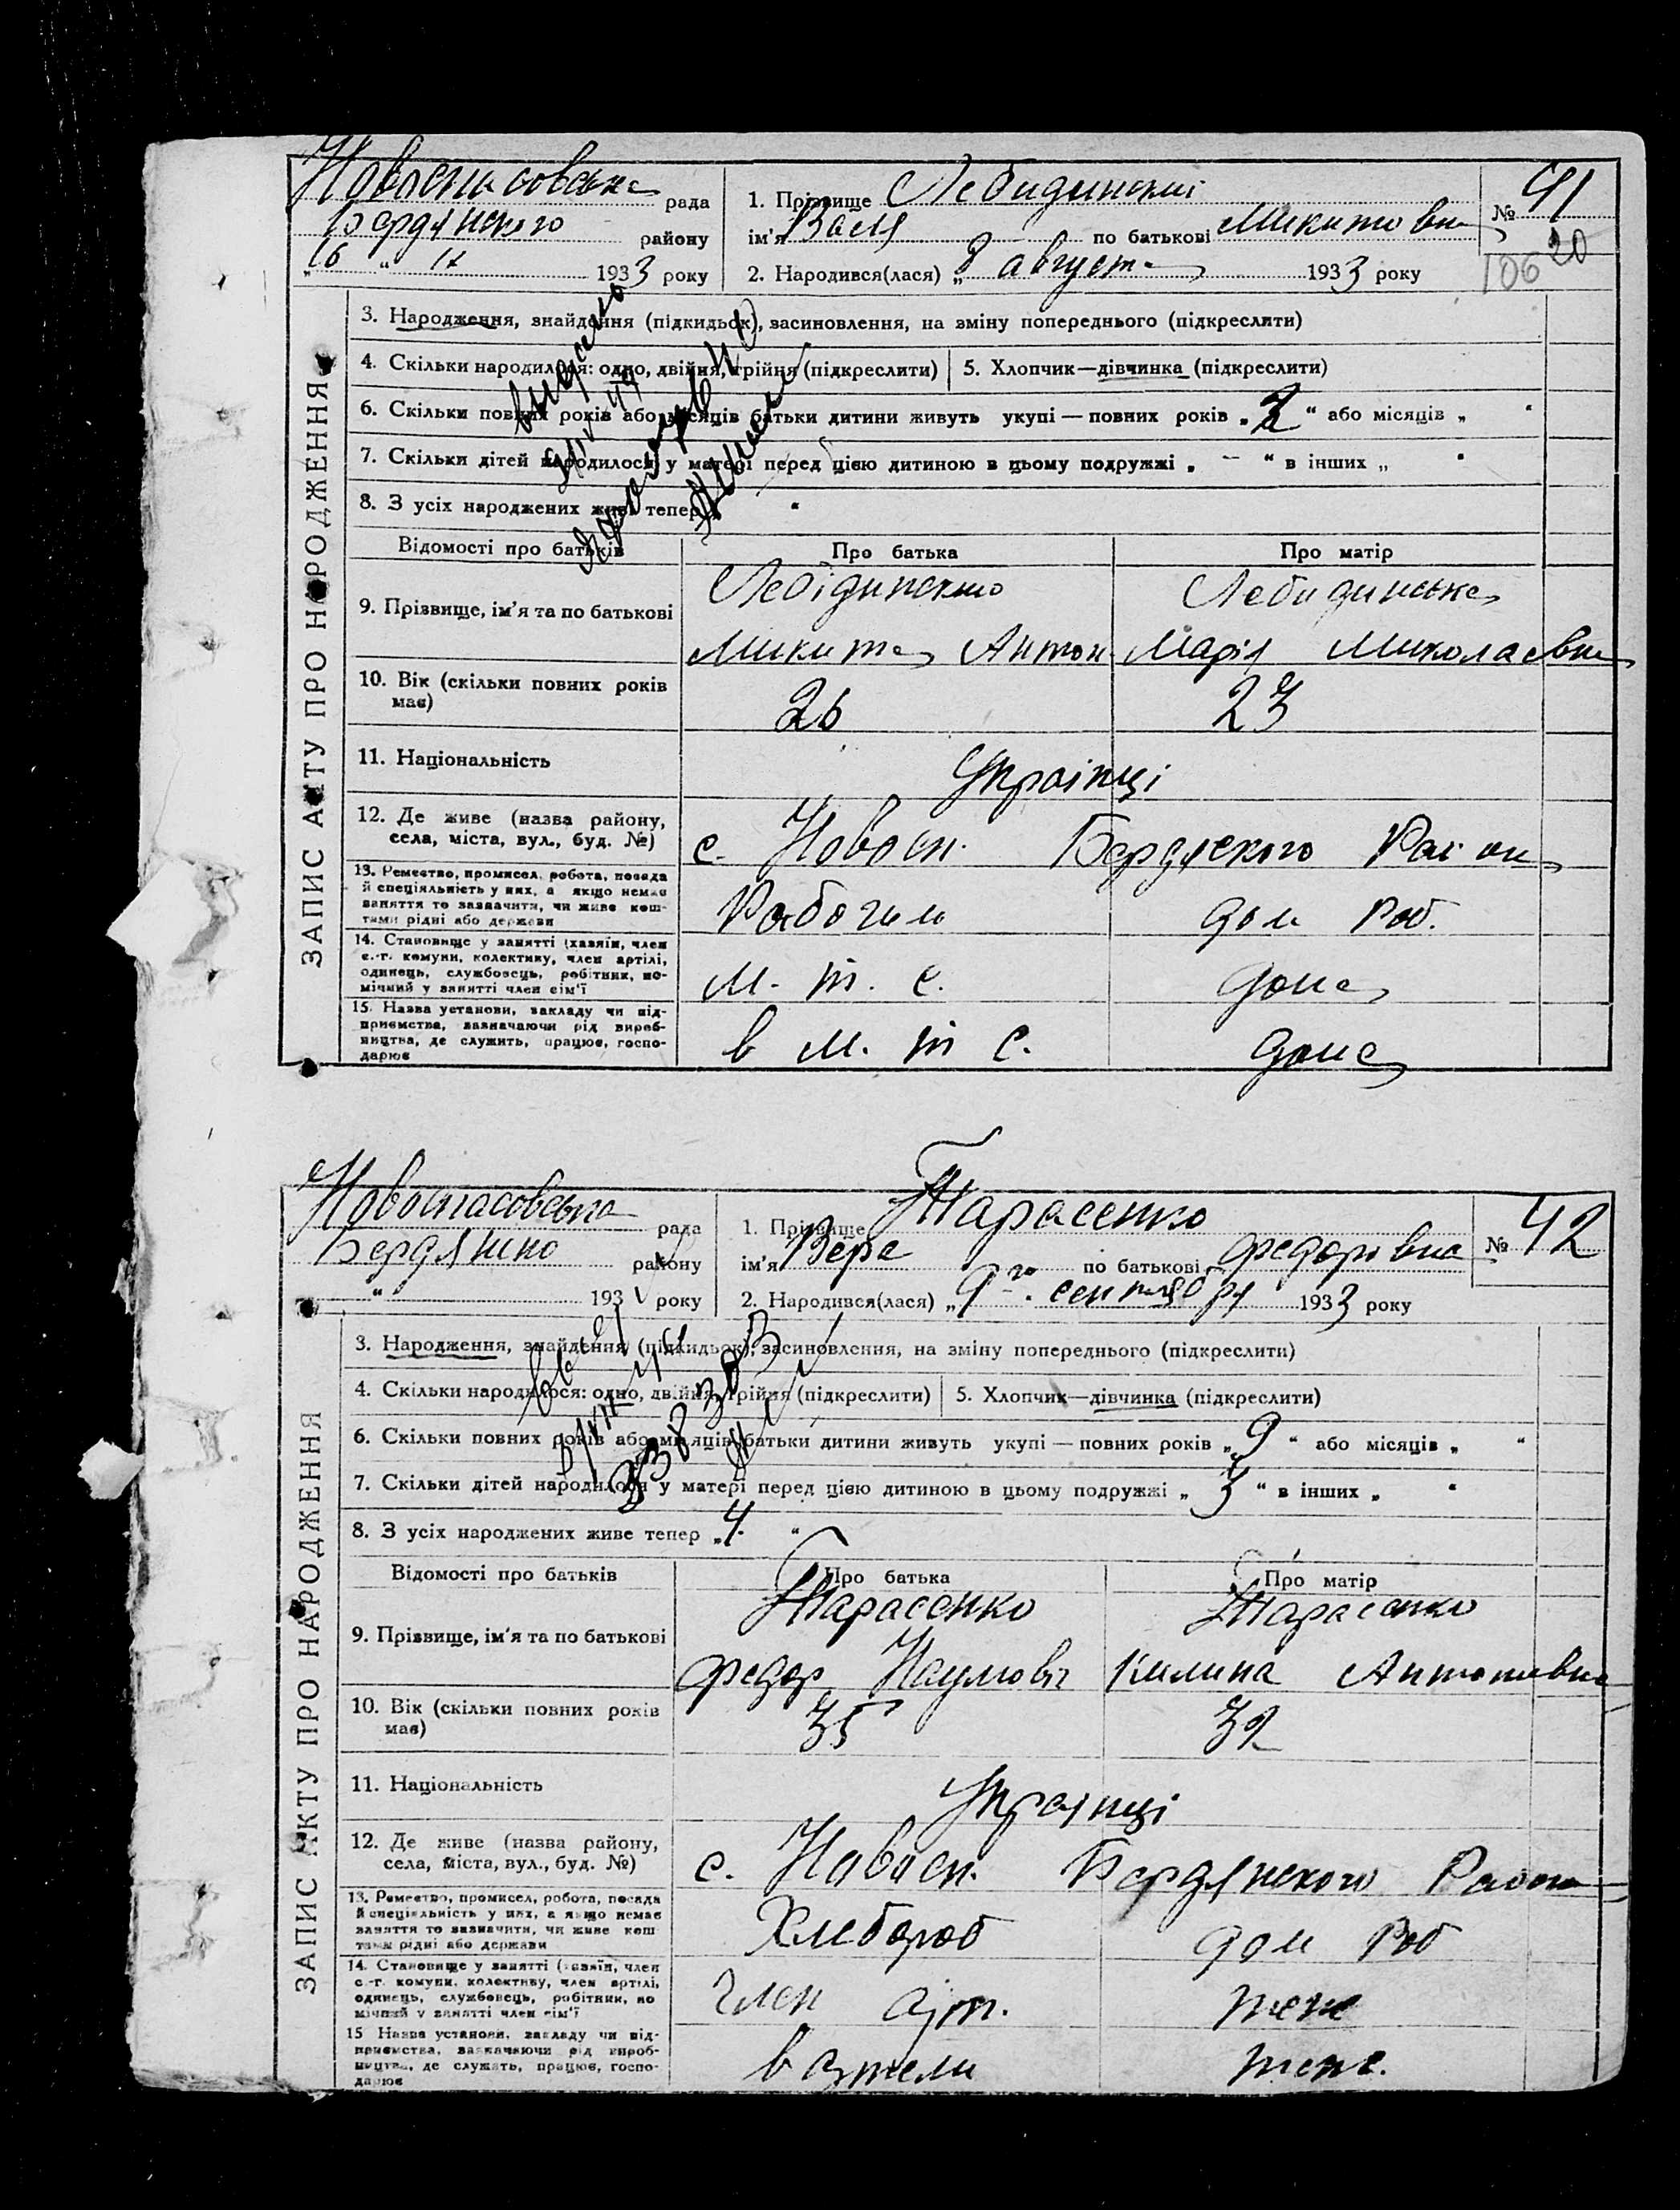 Новоспасовська рада
Бердянского району
„16 “ IX 1933 року
1. Прізвище Лебидинскі
ім'я Валя по батькові Микитовна
2. Народився(лася) „8 августа 1933 року
№ 41
20
106
ЗАПИС АКТУ ПРО НАРОДЖЕННЯ
3. Народження, знайдення (підкидьок), засиновлення, на зміну попереднього (підкреслити)
4. Скільки народилося: одно, двійня, трійня (підкреслити)
5. Хлопчик—дівчинка (підкреслити)
6. Скільки повних років або місяців батьки дитини живуть укупі — повних років „2 “ або місяців „ “
7. Скільки дітей народилося у матері перед цією дитиною в цьому подружжі „ — “ в інших „ “
8. З усіх народжених живе тепер „ “
Відомості про батьків
Про батька
Про матір
9. Прізвище, ім'я та по батькові
Лебідинского
Микита Антон
Лебидинська
Марія Миколаевна
10. Вік (скільки повних років має)
26
23
11. Національність
Українці
12. Де живе (назва району, села, міста, вул., буд. №)
с. Новосп. Бердянского Район
13. Ремество, промисел, робота, посада й спеціяльність у них, а якщо немає заняття то зазначити, чи живе коштами рідні або держави
Рабочим
дом Роб.
14. Становище у занятті (хазяїн, член с.-г. комуни, колективу, член артілі, одинець, службовець, робітник, помічний у занятті член сім'ї
м. т. с.
дома
15. Назва установи, закладу чи підприємства, зазначаючи рід виробництва, де служить, працює, господарює
в м. т с.
дома
Новоспасовська рада
Бердянско району
„ “ 193 року
1. Прізвище Тарасенко
ім'я Вера по батькові Федорівна
2. Народився(лася) „9го. сентября 1933 року
№ 42
ЗАПИС АКТУ ПРО НАРОДЖЕННЯ
3. Народження, знайдення (підкидьок), засиновлення, на зміну попереднього (підкреслити)
4. Скільки народилося: одно, двійня, трійня (підкреслити)
5. Хлопчик—дівчинка (підкреслити)
6. Скільки повних років або місяців батьки дитини живуть укупі — повних років „9 “ або місяців „ “
7. Скільки дітей народилося у матері перед цією дитиною в цьому подружжі „ 3 “ в інших „ “
8. З усіх народжених живе тепер „4. “
Відомості про батьків
Про батька
Про матір
9. Прізвище, ім'я та по батькові
Тарасенко
Федор Наумовіч
Тарасенко
Килина Антонивна
10. Вік (скільки повних років має)
35
32
11. Національність
Українці
12. Де живе (назва району, села, міста, вул., буд. №)
с. Новосп. Бердянского Района
13. Ремество, промисел, робота, посада й спеціяльність у них, а якщо немає заняття то зазначити, чи живе коштами рідні або держави
Хлебороб
дом Роб
14. Становище у занятті (хазяїн, член с.-г. комуни, колективу, член артілі, одинець, службовець, робітник, помічний у занятті член сім'ї
Член арт.
тоже
15 Назва установи, закладу чи підприємства, зазначаючи рід виробництва, де служить, працює, господарює
в артели
тоже.